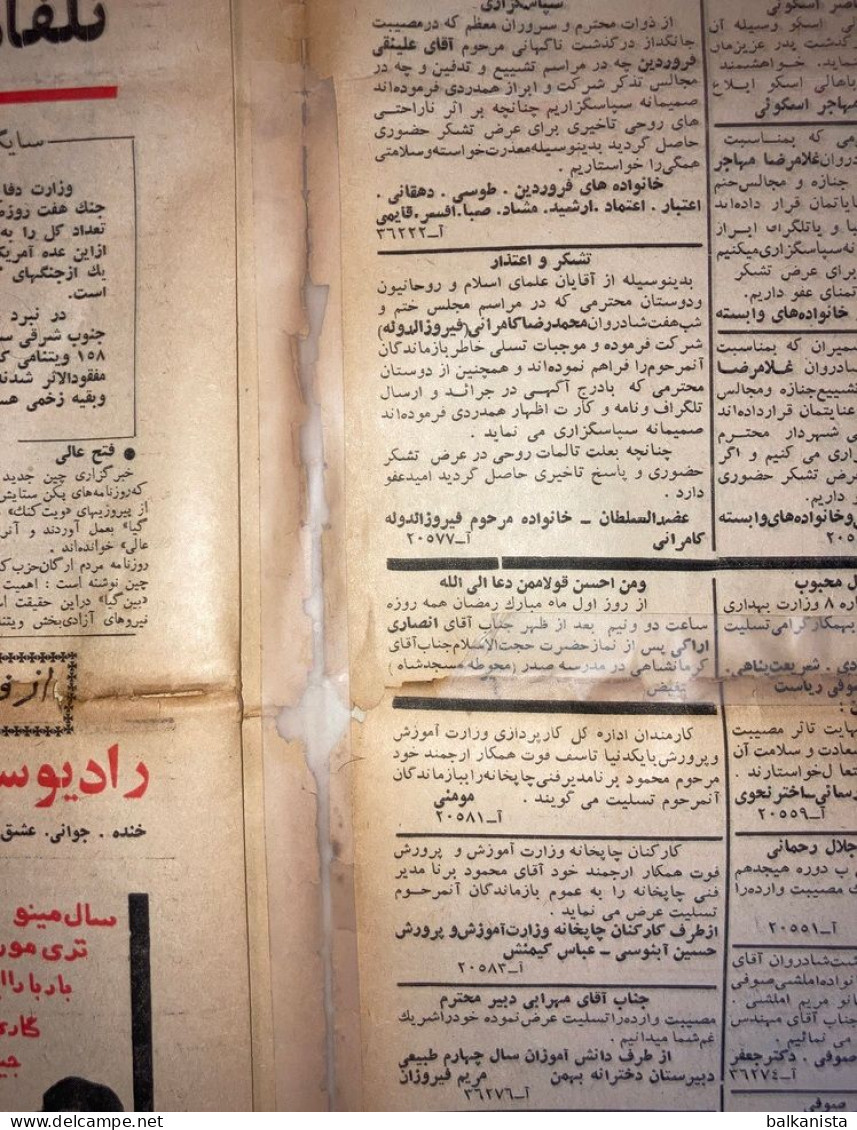 ناصر اسکوئی
اسکو وسیله آن
گذشت پدر عزیزمان
نماید. خواهشمند
باهالی اسکو ابلاغ
مهاجر اسکوئی
می که بمناسبت
دروان غلامرضا مهاجر
جنازه و مجالس ختم
یاتمان قرار داده‌اند
یا و یاتلگرای ابراز
نه سپاسگزاری میکنیم
برای عرض تشکر
تمنای عفو داریم.
خانواده‌های وابسته
سمیران که بمناسبت
شادروان غلامرضا
تشییع جنازه ومجالس
عنایتمان قرارداده‌اند
ی شهردار محترم
زاری می کنیم و اگر
عرض تشکر حضوری
داریم.
و خانواده‌های وابسته
ل محبوب
ره ۸ وزارت بهداری
بهمکار گرامی تسلیت
دی. شریعت پناهی.
صوفی ریاست
نهایت تاثر مصیبت
سعادت و سلامت آن
متعال خواستارند.
رسمانی-اختر نحوی
آ-۲۰۵۵۹
جلال رحمانی
ب دوره هیجدهم
ک مصیبت وارده را
آ-۲۰۵۵۱
شت شادروان آقای
نواده املشی صوفی
بانو مریم املشی.
جناب آقای مهندس
می نمائیم.
صوفی. دکتر جعفر
آ-۳۶۲۷۴
صوفی
سپاسگزاری
از ذوات محترم و سروران معظم که درمصیبت
جانگداز درگذشت ناگهانی مرحوم آقای علینقی
فروردین چه در مراسم تشییع و تدفین و چه در
مجالس تذکر شرکت و ابراز همدردی فرموده‌اند
صمیمانه سپاسگزاریم چنانچه بر اثر ناراحتی
های روحی تاخیری برای عرض تشکر حضوری
حاصل گردید بدینوسیله معذرت خواسته وسلامتی
همگی را خواستاریم.
خانواده های فروردین. طوسی. دهقانی.
اعتبار. اعتماد. ارشید. مشاد. صبا. افسر. قایمی
آ-۳۶۲۲۲
تشکر و اعتذار
بدینوسیله از آقایان علمای اسلام و روحانیون
ودوستان محترمی که در مراسم مجلس ختم و
شب هفت شادروان محمدرضا کامرانی (فیروزالدوله)
شرکت فرموده و موجبات تسلی خاطر بازماندگان
آنمرحوم را فراهم نموده‌اند و همچنین از دوستان
محترمی که بادرج آگهی در جرائد و ارسال
تلگراف ونامه و کارت اظهار همدردی فرموده‌اند
صمیمانه سپاسگزاری می نماید.
چنانچه بعلت تالمات روحی در عرض تشکر
حضوری و پاسخ تاخیری حاصل گردید امید عفو
دارد.
عضدالسلطان - خانواده مرحوم فیروزالدوله
کامرانی آ-۲۰۵۷۷
ومن احسن قولاممن دعا الی الله
از روز اول ماه مبارک رمضان همه روزه
ساعت دو ونیم بعد از ظهر جناب آقای انصاری
اراکی پس از نماز حضرت حجت الاسلام جناب آقای
کرمانشاهی در مدرسه صدر (محوطه مسجدشاه)
کارمندان اداره کل کارپردازی وزارت آموزش
وپرورش بایکدنیا تاسف فوت همکار ارجمند خود
مرحوم محمود برنا مدیر فنی چاپخانه را ببازماندگان
آنمرحوم تسلیت می گویند. مومنی
آ-۲۰۵۸۱
کارکنان چاپخانه وزارت آموزش و پرورش
فوت همکار ارجمند خود آقای محمود برنا مدیر
فنی چاپخانه را به عموم بازماندگان آنمرحوم
تسلیت عرض می نماید.
از طرف کارکنان چاپخانه وزارت آموزش و پرورش
حسین آبنوسی - عباس کیمنش
آ-۲۰۵۸۳
جناب آقای مهرابی دبیر محترم
مصیبت وارده را تسلیت عرض نموده خود را شریک
غم شما میدانیم.
از طرف دانش آموزان سال چهارم طبیعی
دبیرستان دخترانه بهمن مریم فیروزان
آ-۳۶۲۷۶
وزارت دفا
جنگ هفت روزه
تعداد کل را به
ازاین عده آمریک
یک ازجنگهای
است.
در نبرد
جنوب شرقی سـ
۱۵۸ ویتنامی ک
مفقودالاثر شدند
وبقیه زخمی هس
● فتح عالی
خبرگزاری چین جدید
که روزنامه‌های پکن ستایش
از پیروزیهای «ویت کنگ»
گیا» بعمل آوردند و آنر
عالی» خوانده‌اند.
روزنامه مردم ارگان حزب ک
چین نوشته است: اهمیت
«بین گیا» دراین حقیقت اس
نیروهای آزادی بخش ویتنا
از
رادیو
خنده. جوانی. عشق
سال مینو
تری مور
باربارا
گاری
balkanista